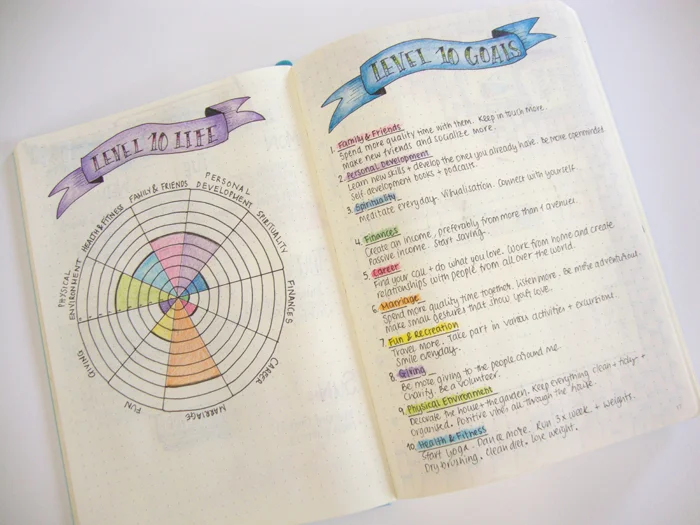 LEVEL 10 LIFE
FAMILY & FRIENDS
PERSONAL
DEVELOPMENT
SPIRITUALITY
FINANCES
CAREER
MARRIAGE
FUN
GIVING
PHYSICAL
ENVIRONMENT
HEALTH & FITNESS
LEVEL 10 GOALS
1. Family & Friends
Spend more quality time with them. Keep in touch more.
Make new friends and socialize more.
2. Personal Development
Learn new skills + develop the ones you already have. Be more openminded
Self development books + podcasts.
3. Spirituality
Meditate everyday. Visualisation. Connect with yourself.
4. Finances
Create an income, preferably from more than 1 avenue.
Passive income. Start saving.
5. Career
Find your call + do what you love. Work from home and create
relationships with people from all over the world.
6. Marriage
Spend more quality time together. Listen more. Be more adventurous.
Make small gestures that show your love.
7. Fun & Recreation
Travel more. Take part in various activities + excursions.
Smile everyday.
8. Giving
Be more giving to the people around me.
Charity. Be a volunteer.
9. Physical Environment
Decorate the house + the garden. Keep everything clean + tidy +
organised. Positive vibes all through the house.
10. Health & Fitness
Start yoga. Dance more. Run 3x week. + weights.
Dry brushing. Clean diet. Lose weight.